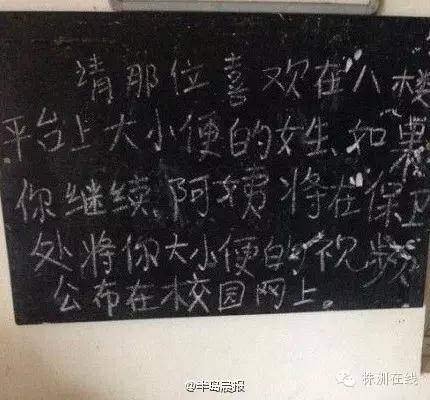 请那位喜欢在八楼
平台上大小便的女生、如果
你继续,阿姨将在保卫
处将你大小便的视频
公布在校园网上.
@半岛晨报
株洲在线